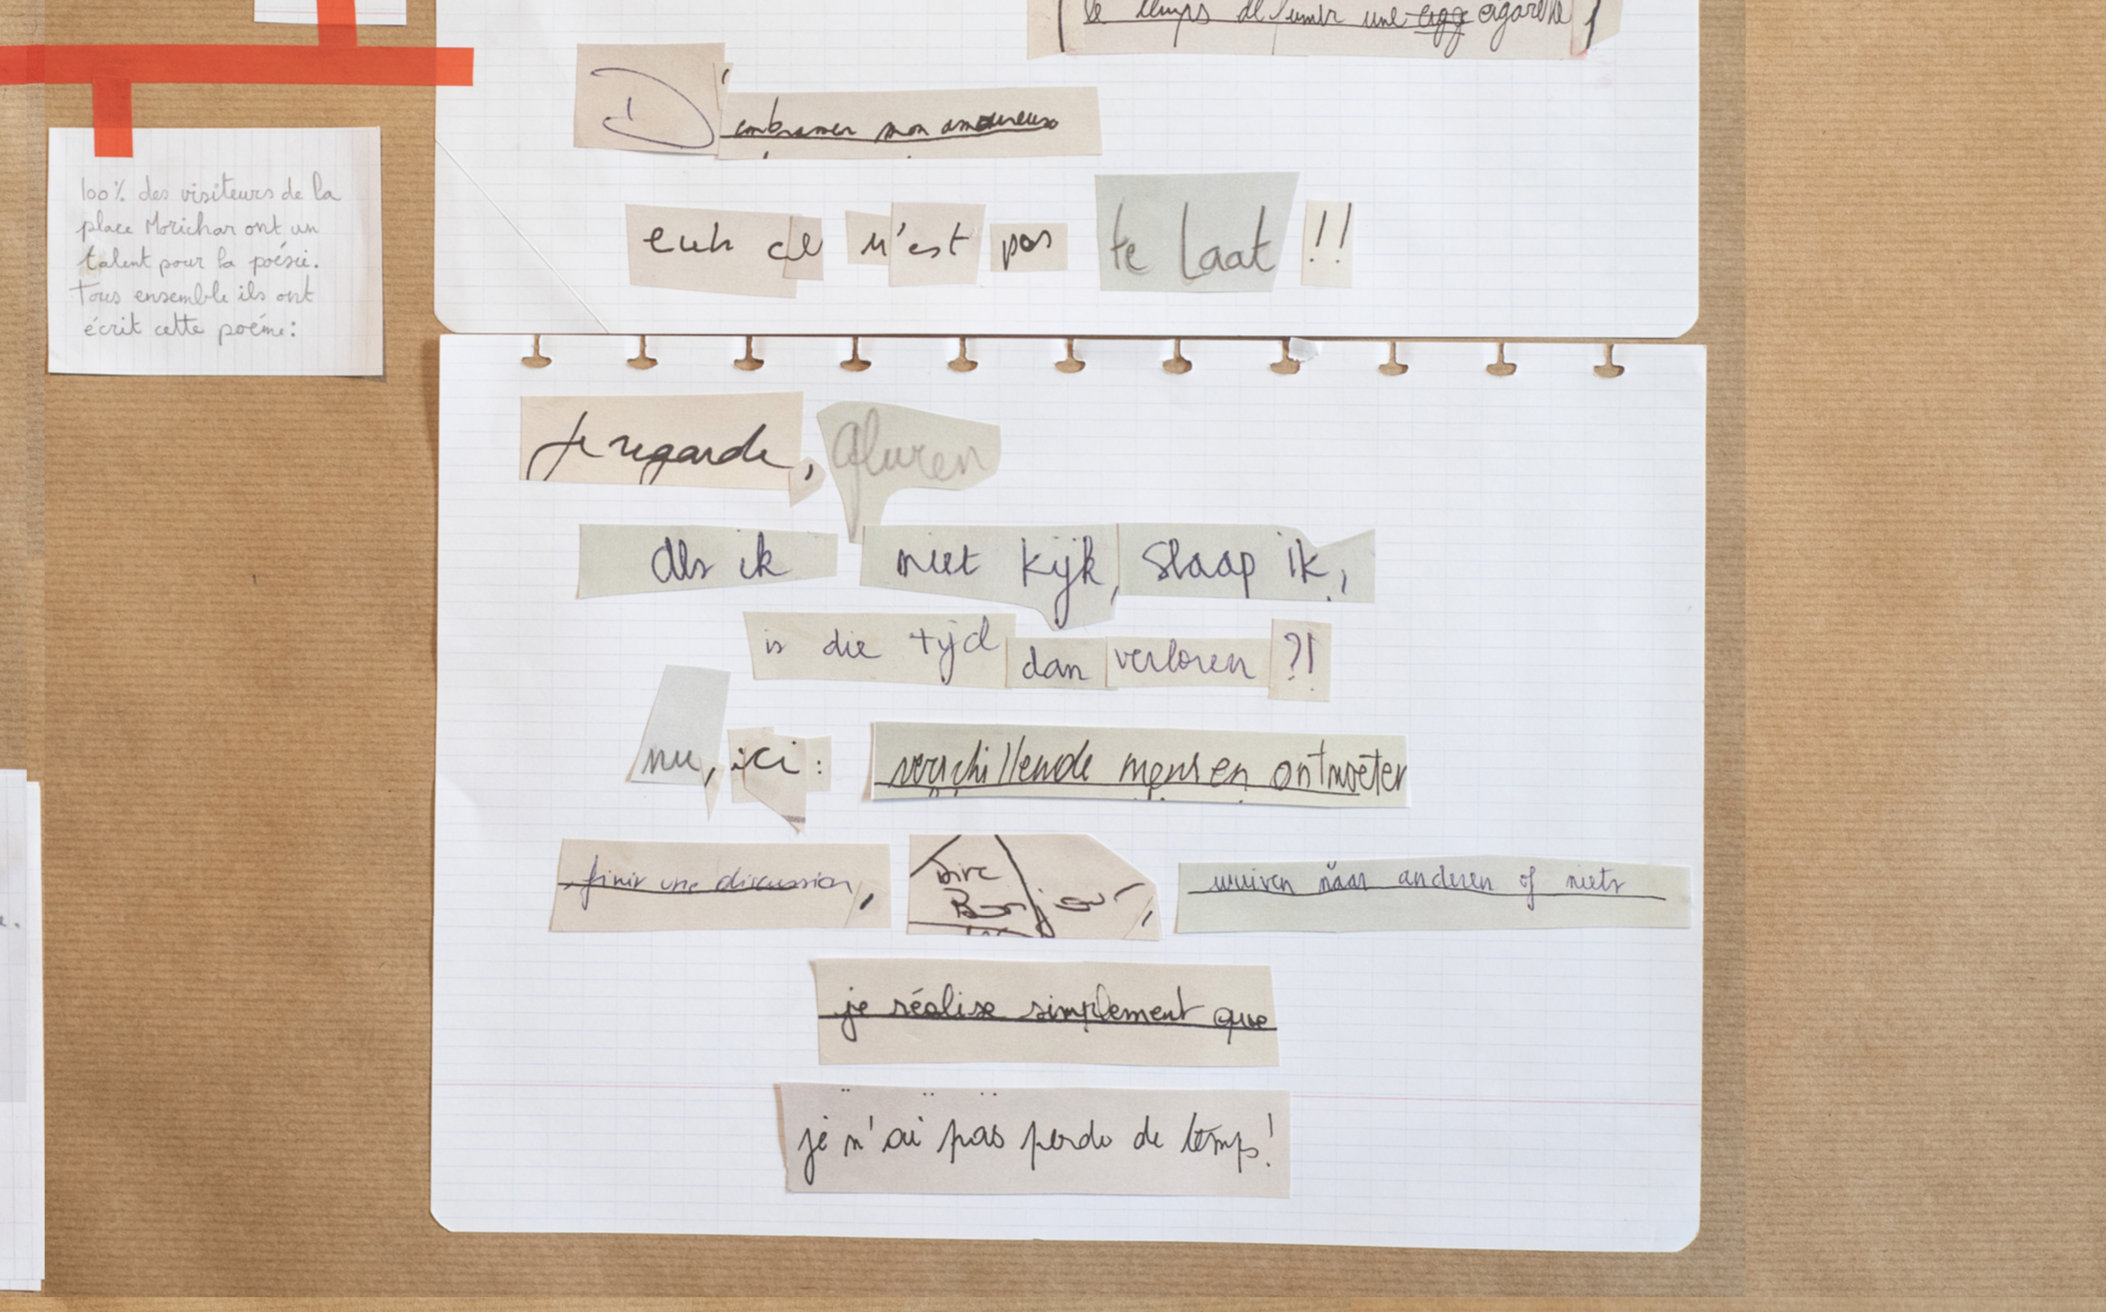 le temps de fumer une cigg cigarette
D'embrasser mon amoureux
euh ce n'est pas te laat !!
100% des visiteurs de la
place Morichar ont un
talent pour la poésie.
Tous ensemble ils ont
écrit cette poéme:
Je regarde, Gluren
Als ik niet kijk, slaap ik,
is die tijd dan verloren ?!
nu, ici : verschillende mensen ontmoeten
finir une discussion, Dire Bonjour, wuiven naar anderen of niets
je réalise simplement que
je n'ai pas perdu de temps!